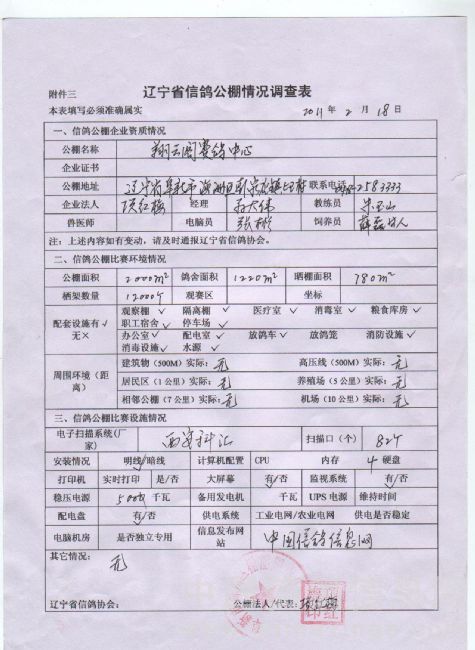 附件三
辽宁省信鸽公棚情况调查表
本表填写必须准确属实 2011 年 2 月 18 日
一、信鸽公棚企业资质情况
公棚名称 翔云阁赛鸽中心
企业证书
公棚地址 辽宁省阜新市 联系电话 2583333
企业法人 项红梅 经理 教练员
兽医师 电脑员 张彬 饲养员
注：上述内容如有变动，请及时通报辽宁省信鸽协会。
二、信鸽公棚比赛环境情况
公棚面积 2000m² 鸽舍面积 1220m² 晒棚面积 780m²
栖架数量 12000个 观赛区 坐标
配套设施有√ 观察棚 √ 隔离棚 √ 医疗室 √ 消毒室 √ 粮食库房 √
无× 职工宿舍 √ 停车场 √
办公室 √ 配电室 √ 放鸽车 √ 放鸽笼 √ 消防设施 √
消毒设施 √ 水源 √
周围环境（距离） 建筑物（500M）实际：无 高压线（500M）实际：无
居民区（1 公里）实际：无 养殖场（5 公里）实际：无
相邻公棚（7 公里）实际：无 机场（10 公里）实际：无
三、信鸽公棚比赛设施情况
电子扫描系统(厂家) 西安科汇 扫描口（个） 82个
安装情况 明线/暗线 计算机配置 CPU 内存 4 硬盘
打印机 实时打印 是/否 大屏幕 有/否 监视系统 有/否
稳压电源 5000 千瓦 备用发电机 千瓦 UPS 电源 维持时间
配电盘 有/否 供电系统 工业电网/农业电网 供电是否稳定
电脑机房 是否独立专用 信息发布网站 中国信鸽信息网
其它情况：
无
辽宁省信鸽协会： 公棚法人/代表：项红梅